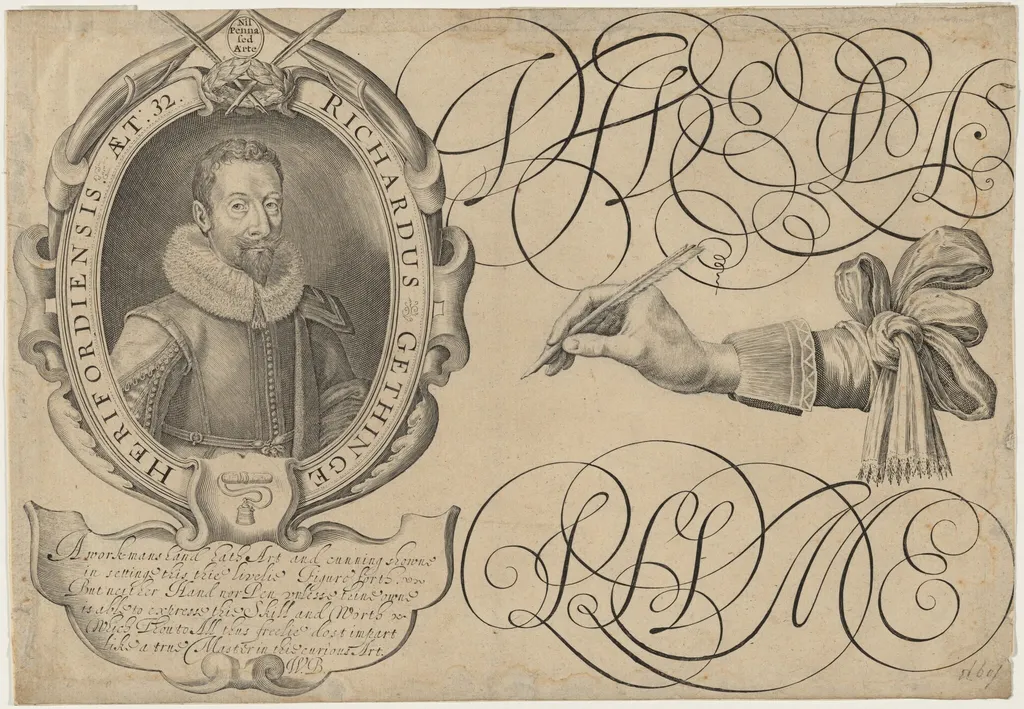 Nil
Penna
sed
Arte
RICHARDUS GETHINGE HERIFORDIENSIS. ÆT: 32.
A workmans hand hath Art and cunning showne
in setting this thie livelie Figure forth,
But neither Hand nor Pen vnlesse thine owne
is able to expresse thie Skill and Worth
Which Thou to All thus freelie dost impart
like a true Master in thie curious Art.
W.B